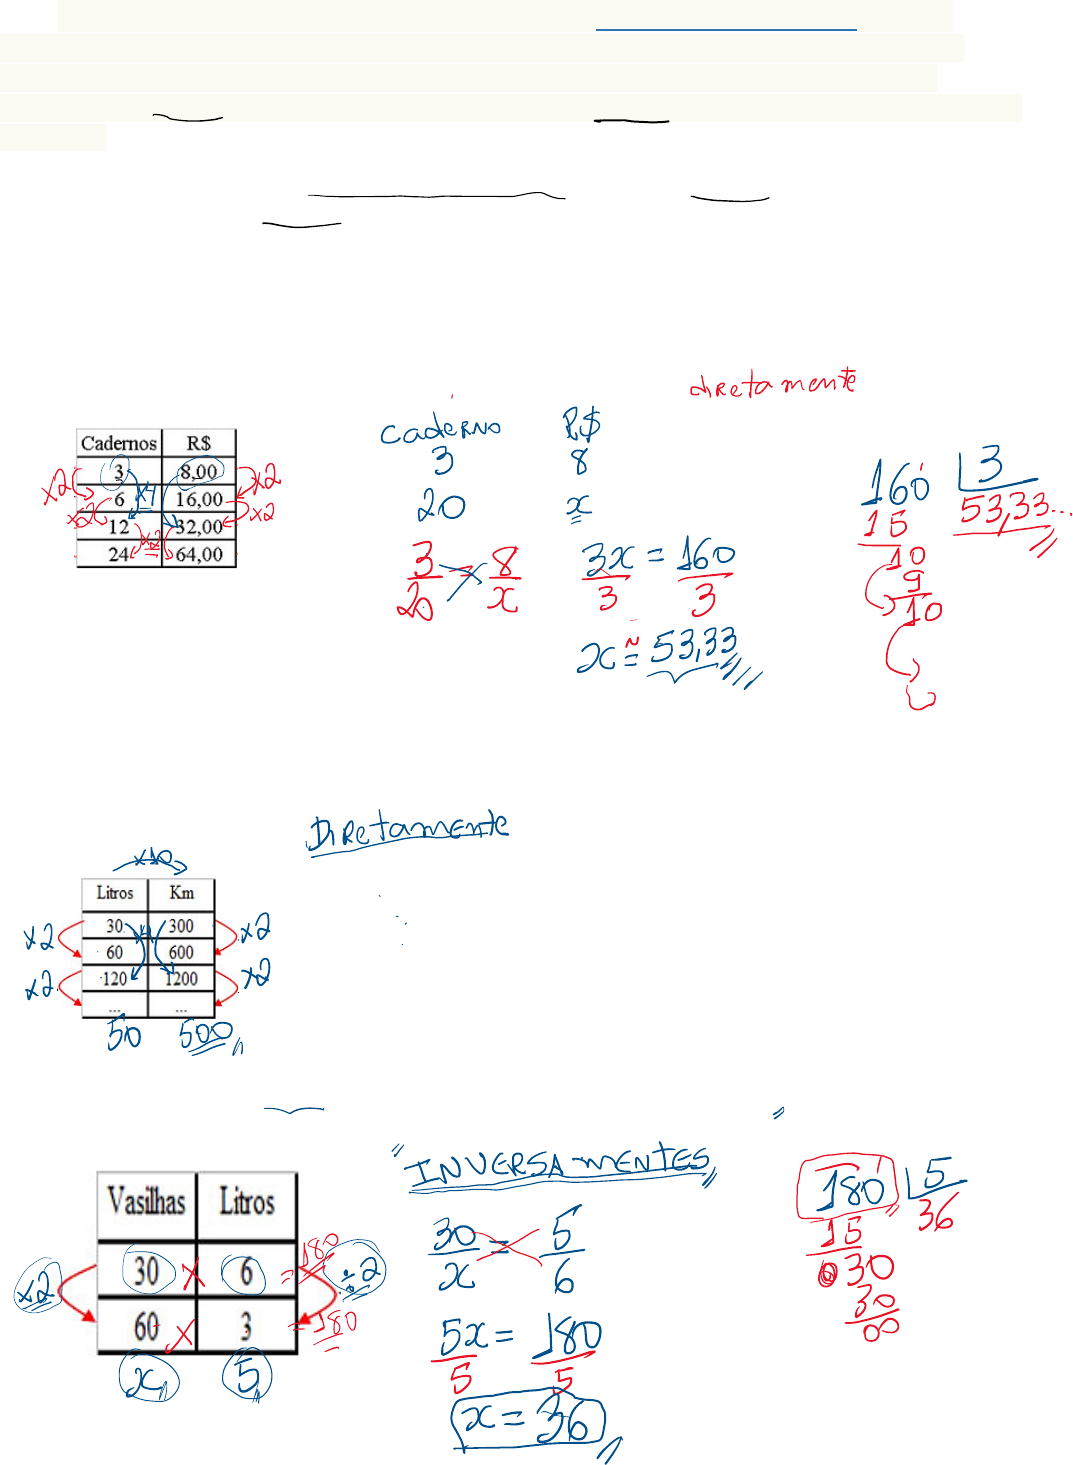 diretamente
Caderno R$
3 8
20 x
Cadernos R$
3 8,00
6 16,00
12 32,00
24 64,00
x2 x2
x2 x4 x2
x2
3/20 = 8/x
3x = 160
3 3
x ≅ 53,33
160 3
15 53,33...
10
9
10
Diretamente
x10
Litros Km
30 300
60 600
120 1200
... ...
50 500
x2 4 x2
x2 x2
"INVERSAMENTES"
Vasilhas Litros
30 x 6 = 180
60 x 3 = 180
x 5
x2 ÷2
30/x = 5/6
5x = 180
5 5
x = 36
180 5
15 36
030
30
00